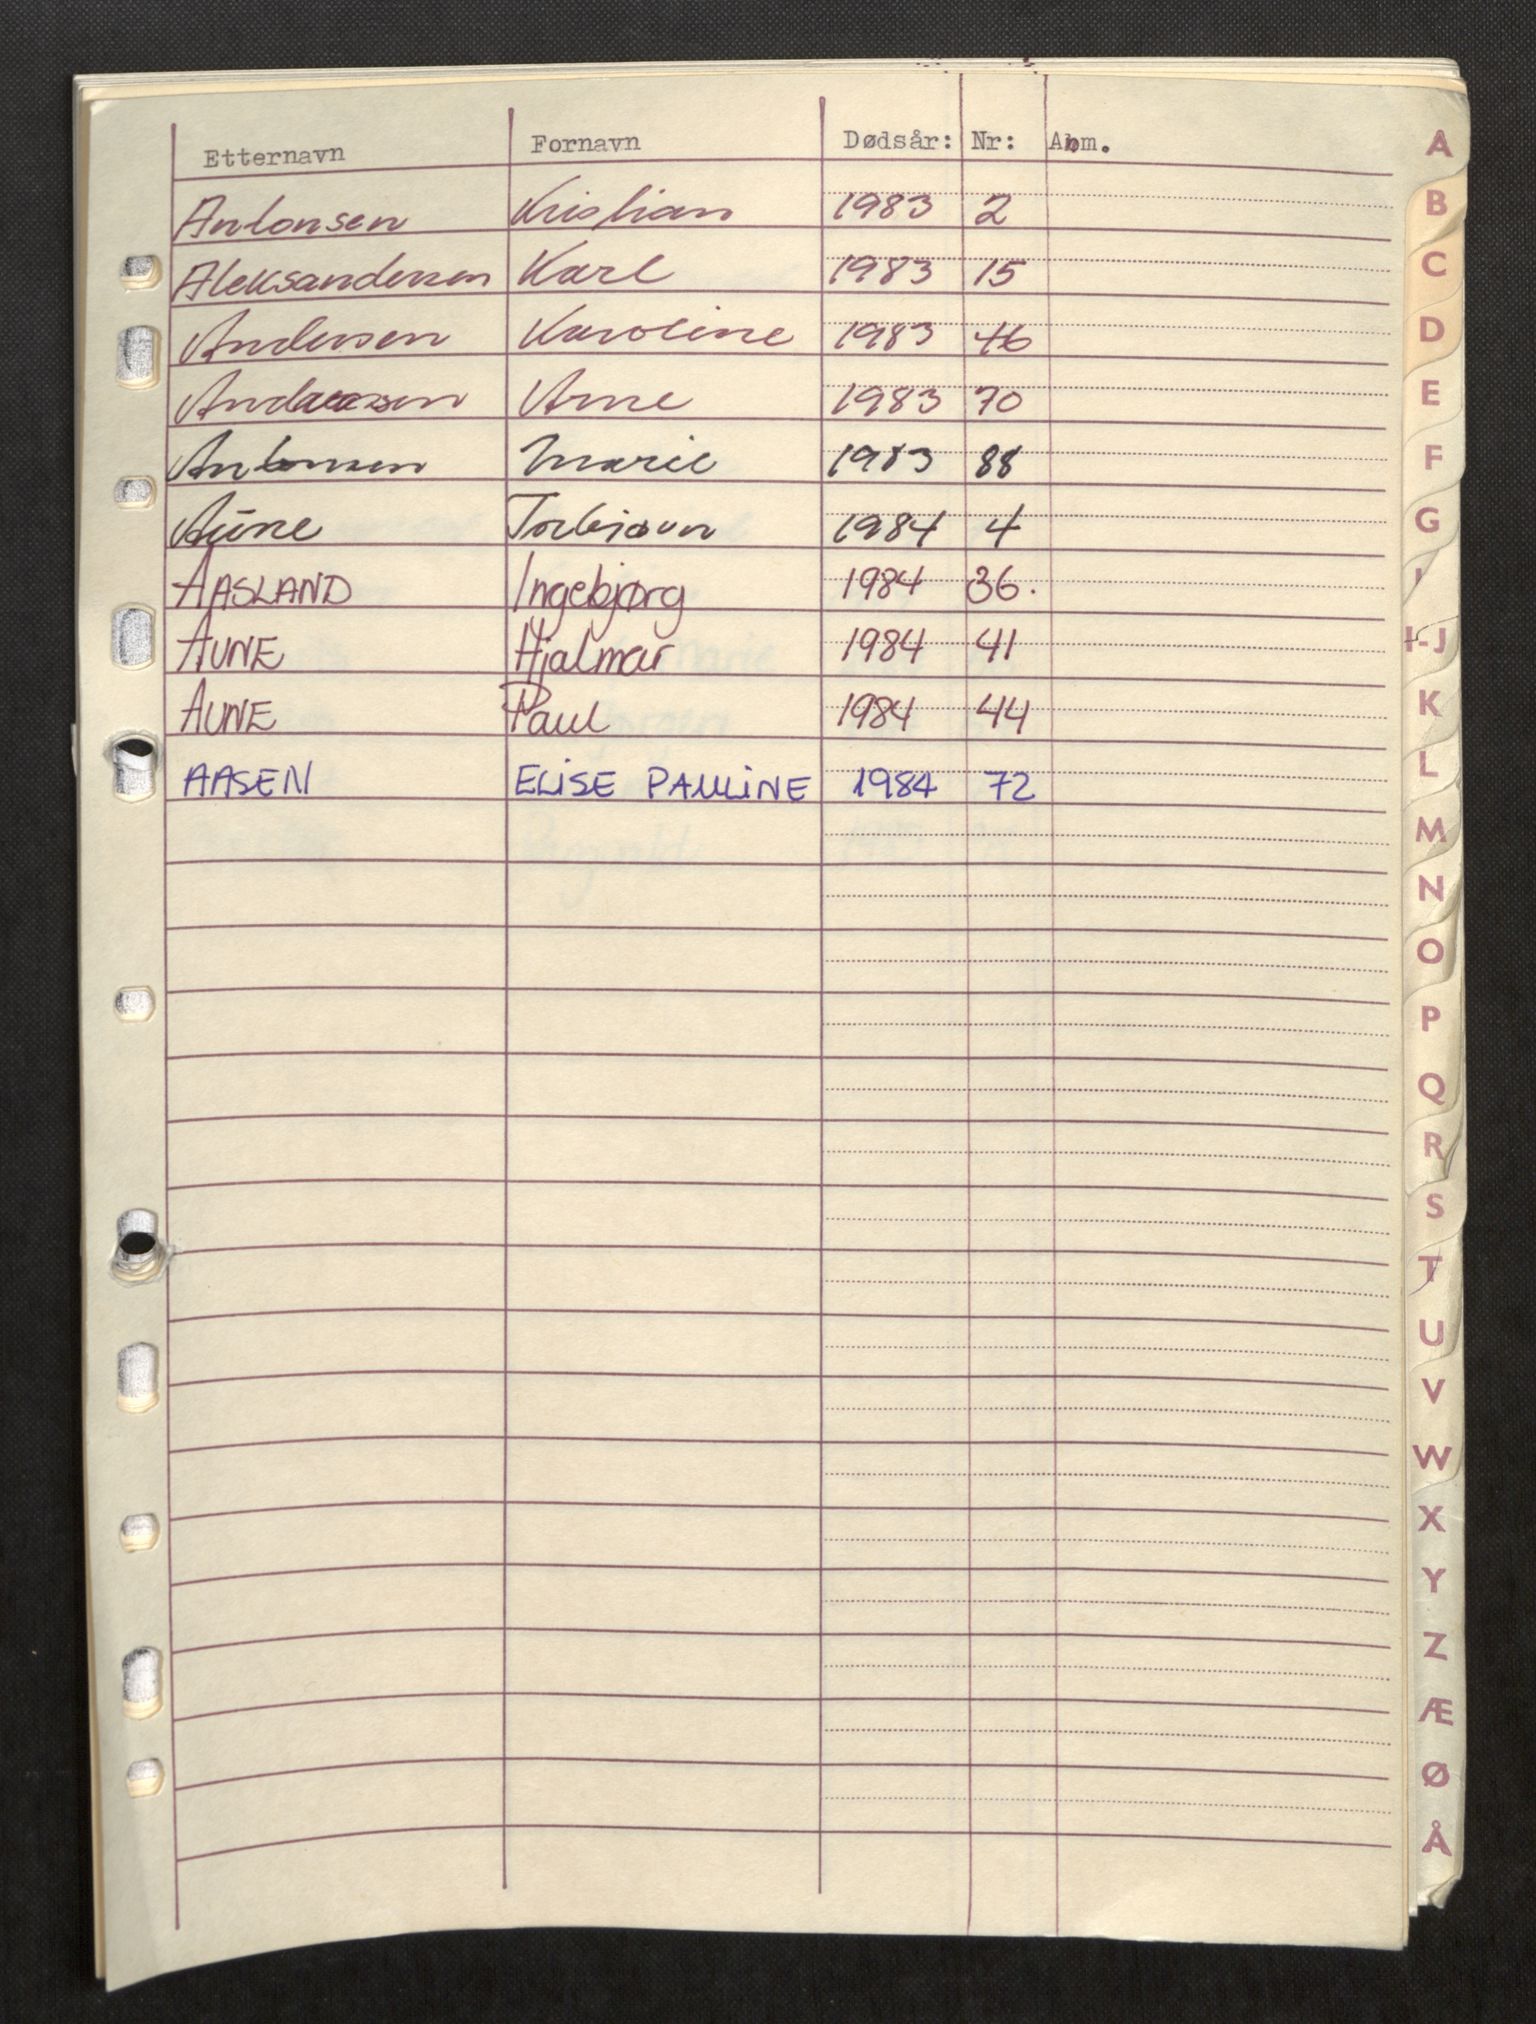 Etternavn Fornavn Dødsår: Nr: Anm.
Antonsen Kristian 1983 2
Aleksandersen Karl 1983 15
Andersen Karoline 1983 46
Andreassen Arne 1983 70
Antonsen Marie 1983 88
Aune Torbjørn 1984 4
AASLAND Ingebjørg 1984 36.
AUNE Hjalmar 1984 41
AUNE Paul 1984 44
AASEN ELISE PAULINE 1984 72
A
B
C
D
E
F
G
I-J
K
L
M
N
O
P
Q
R
S
T
U
V
W
X
Y
Z
Æ
Ø
Å